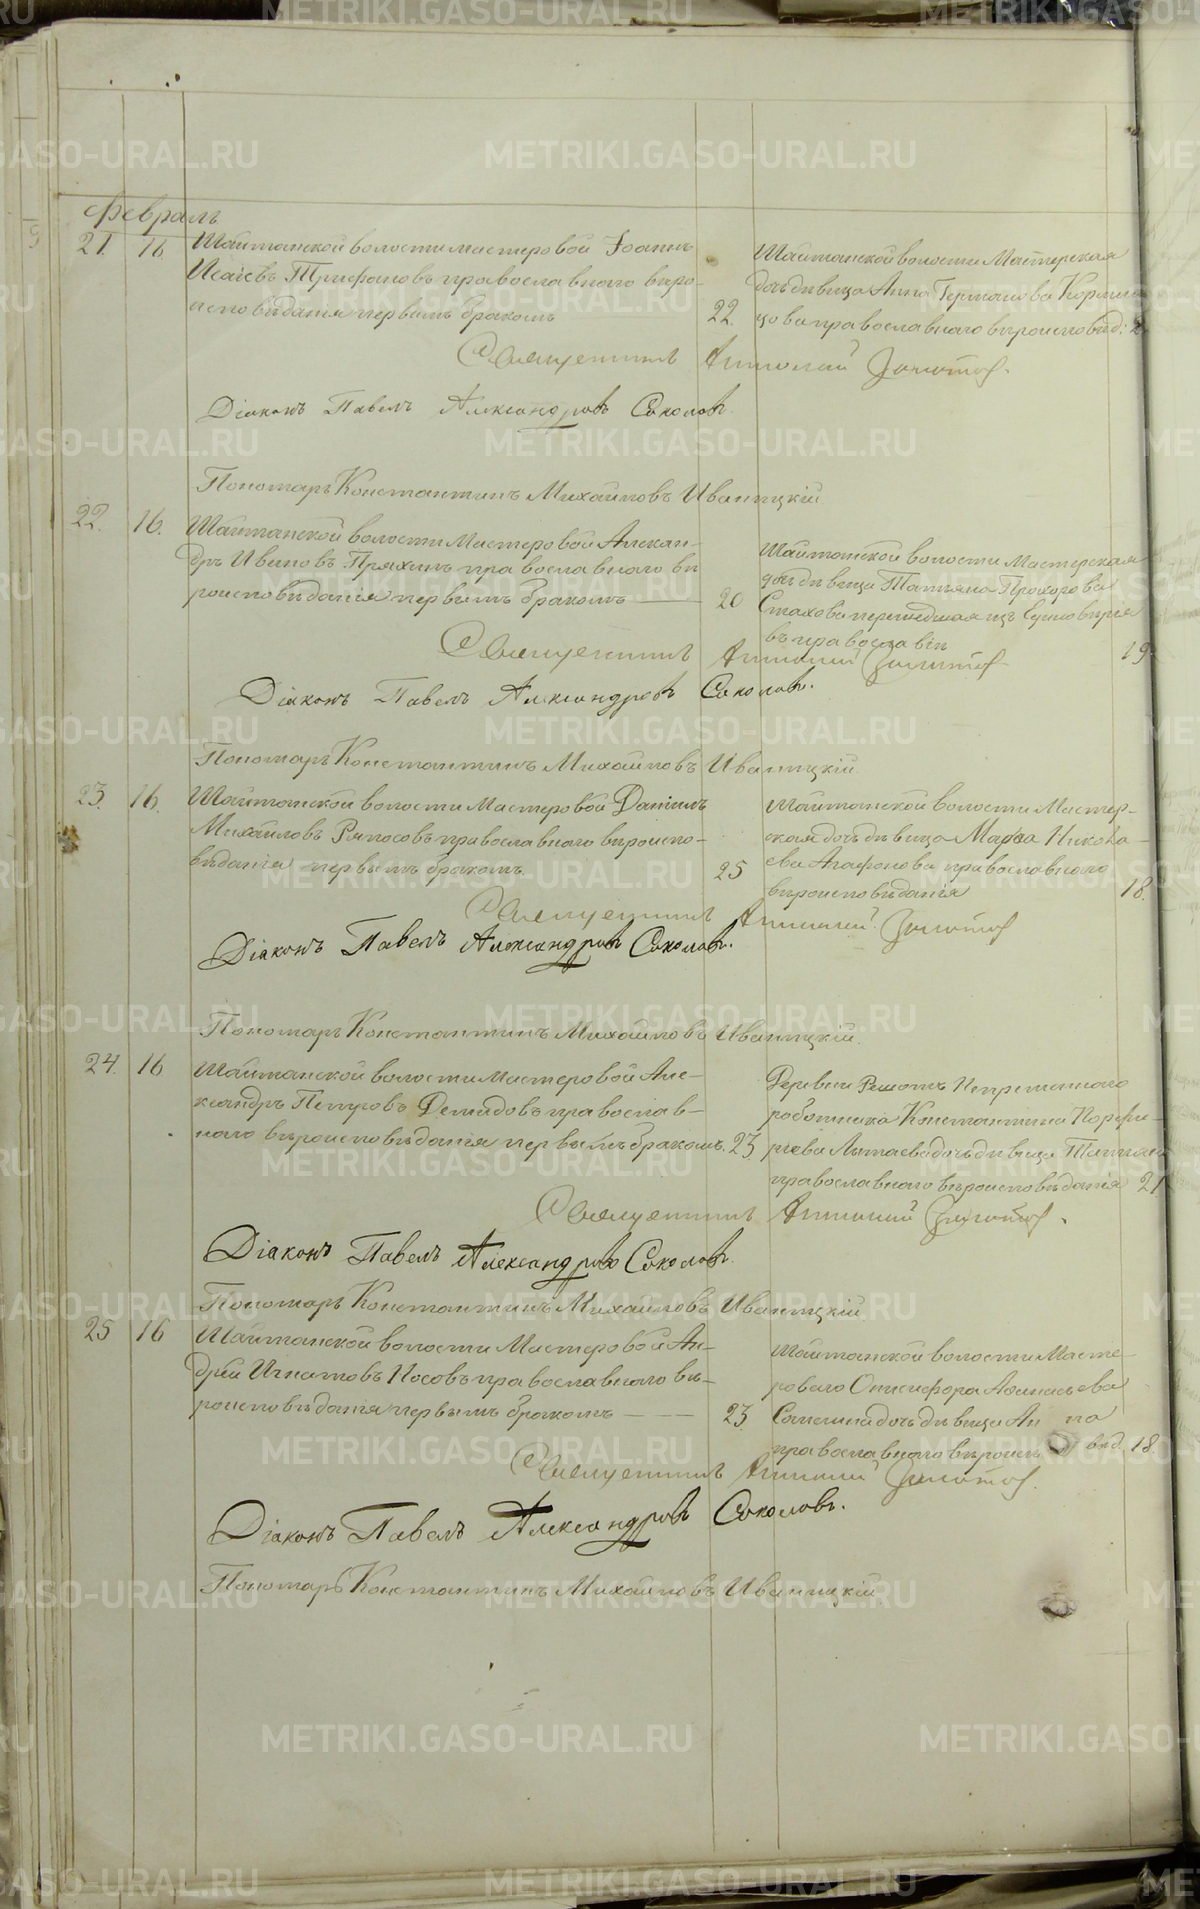 Февраль
21. 16. Шайтанской волости мастеровой Іоаннъ
Исаіевъ Трифановъ православнаго вѣро-
исповѣданія первымъ бракомъ 22.
Шайтанской волости Мастерская
дочь дѣвица Анна Германова
православнаго вѣроисповѣд:
Священникъ Антоній Золотов.
Діаконъ Павелъ Александровъ Соколовъ.
Пономарь Константинъ Михайловъ Иваницкій
22. 16. Шайтанской волости Мастеровой Алексан-
дръ Ивановъ Пряхинъ православнаго вѣ
роисповѣданія первымъ бракомъ 20
Шайтанской волости Мастерская
дочь дѣвица Татьяна Прохорова
Стахова перешедшая изъ Единовѣрія
въ православіе 19
Священникъ Антоній Золотов
Діаконъ Павелъ Александровъ Соколовъ.
Пономарь Константинъ Михайловъ Иваницкій.
23. 16. Шайтанской волости Мастеровой Даніилъ
Михайловъ православнаго вѣроиспо-
вѣданія первымъ бракомъ. 25
Шайтанской волости Мастер-
ская дочь дѣвица Марѳа Никола-
ева Агафонова православнаго
вѣроисповѣданія 18.
Священникъ Антоній Золотов
Діаконъ Павелъ Александровъ Соколовъ.
Пономарь Константинъ Михайловъ Иваницкій.
24. 16 Шайтанской волости Мастеровой Але-
ксандръ Петровъ Демидовъ православ-
наго вѣроисповѣданія первымъ бракомъ. 23
Деревни Решотъ Непременнаго
работника Константина Порфи-
рьева дочь дѣвица
православнаго вѣроисповѣданія 21
Священникъ Антоній Золотов.
Діаконъ Павелъ Александровъ Соколовъ.
Пономарь Константинъ Михайловъ Иваницкій
25 16 Шайтанской волости Мастеровой Ан-
дрей Игнатовъ Носовъ православнаго вѣ-
роисповѣданія первымъ бракомъ 23
Шайтанской волости Масте-
роваго Онисифора Афанасьева
дочь дѣвица Анна
православнаго вѣроиспо вѣд. 18
Священникъ Антоній Золотов.
Діаконъ Павелъ Александровъ Соколовъ.
Пономарь Константинъ Михайловъ Иваницкій.
METRIKI.GASO-URAL.RU